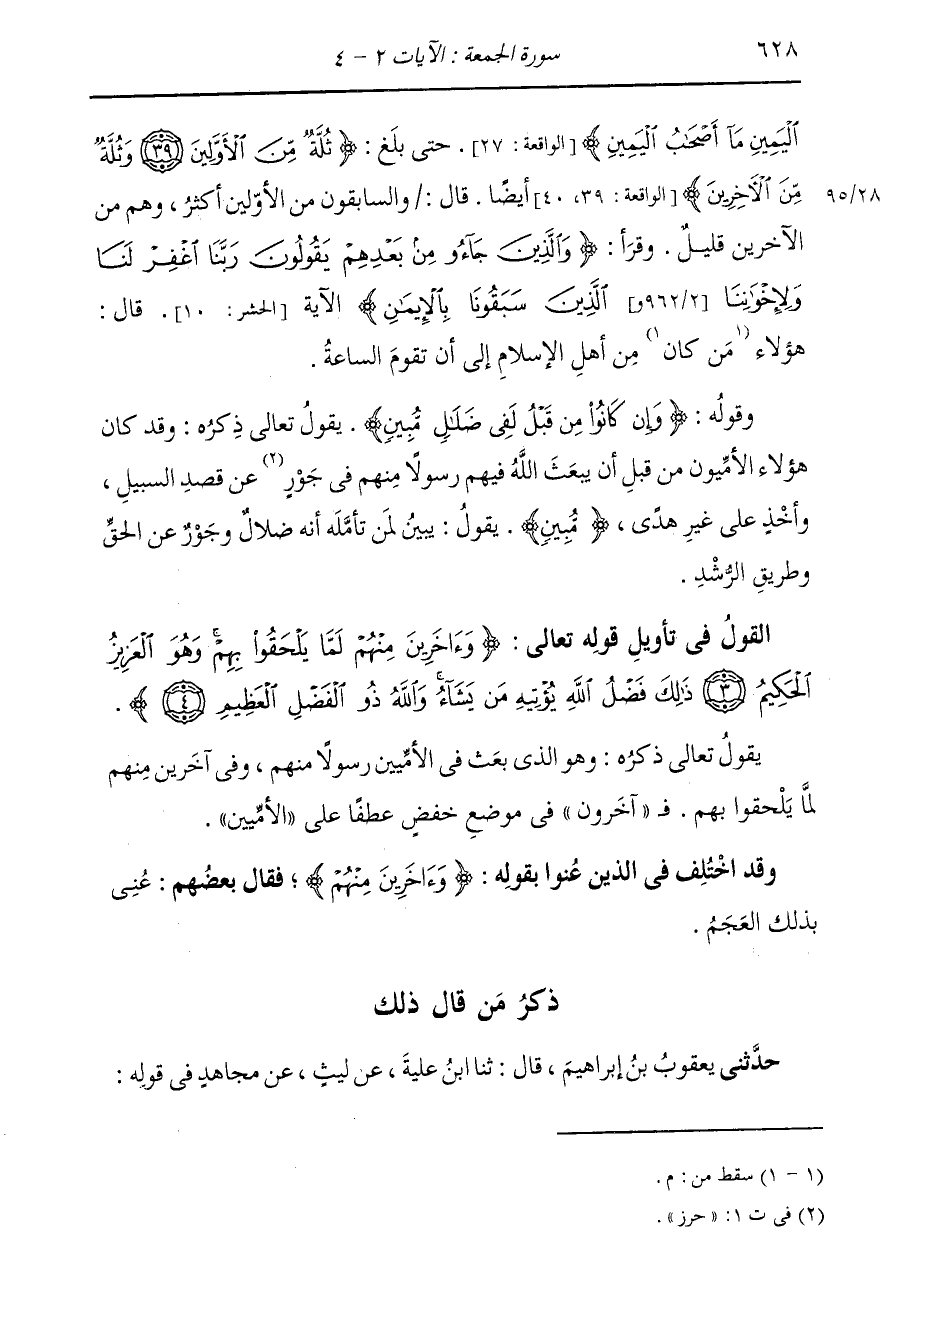 ٦٢٨
سورة الجمعة : الآيات ٢ - ٤
ٱلْيَمِينِ مَآ أَصْحَٰبُ ٱلْيَمِينِ﴾ [الواقعة : ٢٧] . حتى بلَغ : ﴿ ثُلَّةٌ مِّنَ ٱلْأَوَّلِينَ ﴿٣٩﴾ وَثُلَّةٌ
مِّنَ ٱلْآخِرِينَ ﴾ [الواقعة : ٣٩، ٤٠] أيضًا . قال :/ والسابقون من الأوّلين أكثرُ ، وهم من
٩٥/٢٨
الآخرين قليلٌ . وقرَأ : ﴿ وَٱلَّذِينَ جَآءُو مِنۢ بَعْدِهِمْ يَقُولُونَ رَبَّنَا ٱغْفِرْ لَنَا
وَلِإِخْوَٰنِنَا [٩٦٢/٢و] ٱلَّذِينَ سَبَقُونَا بِٱلْإِيمَٰنِ﴾ الآية [الحشر : ١٠] . قال :
هؤلاء (١مَن كان١) مِن أهلِ الإسلامِ إلى أن تقومَ الساعةُ .
وقولُه : ﴿ وَإِن كَانُوا۟ مِن قَبْلُ لَفِى ضَلَٰلٍ مُّبِينٍ﴾ . يقولُ تعالى ذِكرُه : وقد كان
هؤلاء الأمِّيون من قبلِ أن يبعَثَ اللَّهُ فيهم رسولًا مِنهم فى جَوْرٍ(٢) عن قصدِ السبيلِ ،
وأخْذٍ على غيرِ هدًى ، ﴿ مُّبِينٍ﴾ . يقولُ : يبينُ لمن تأمَّله أنه ضلالٌ وجَوْرٌ عن الحقِّ
وطريقِ الرُّشْدِ .
القولُ فى تأويلِ قولِه تعالى : ﴿ وَءَاخَرِينَ مِنْهُمْ لَمَّا يَلْحَقُوا۟ بِهِمْ ۚ وَهُوَ ٱلْعَزِيزُ
ٱلْحَكِيمُ ﴿٣﴾ ذَٰلِكَ فَضْلُ ٱللَّهِ يُؤْتِيهِ مَن يَشَآءُ ۚ وَٱللَّهُ ذُو ٱلْفَضْلِ ٱلْعَظِيمِ ﴿٤﴾ ﴾ .
يقولُ تعالى ذكرُه : وهو الذى بعَث فى الأمِّيين رسولًا منهم ، وفى آخَرين مِنهم
لمَّا يَلْحقوا بهم . فـ « آخَرون » فى موضعِ خفضٍ عطفًا على «الأمِّيين» .
وقد اخْتُلِف فى الذين عُنوا بقولِه : ﴿ وَءَاخَرِينَ مِنْهُمْ ﴾ ؛ فقال بعضُهم : عُنِى
بذلك العَجَمُ .
ذكرُ مَن قال ذلك
حدَّثنى يعقوبُ بنُ إبراهيمَ ، قال : ثنا ابنُ عليةَ ، عن ليثٍ ، عن مجاهدٍ فى قولِه :
(١ - ١) سقط من : م .
(٢) فى ت ١: « حرز» .